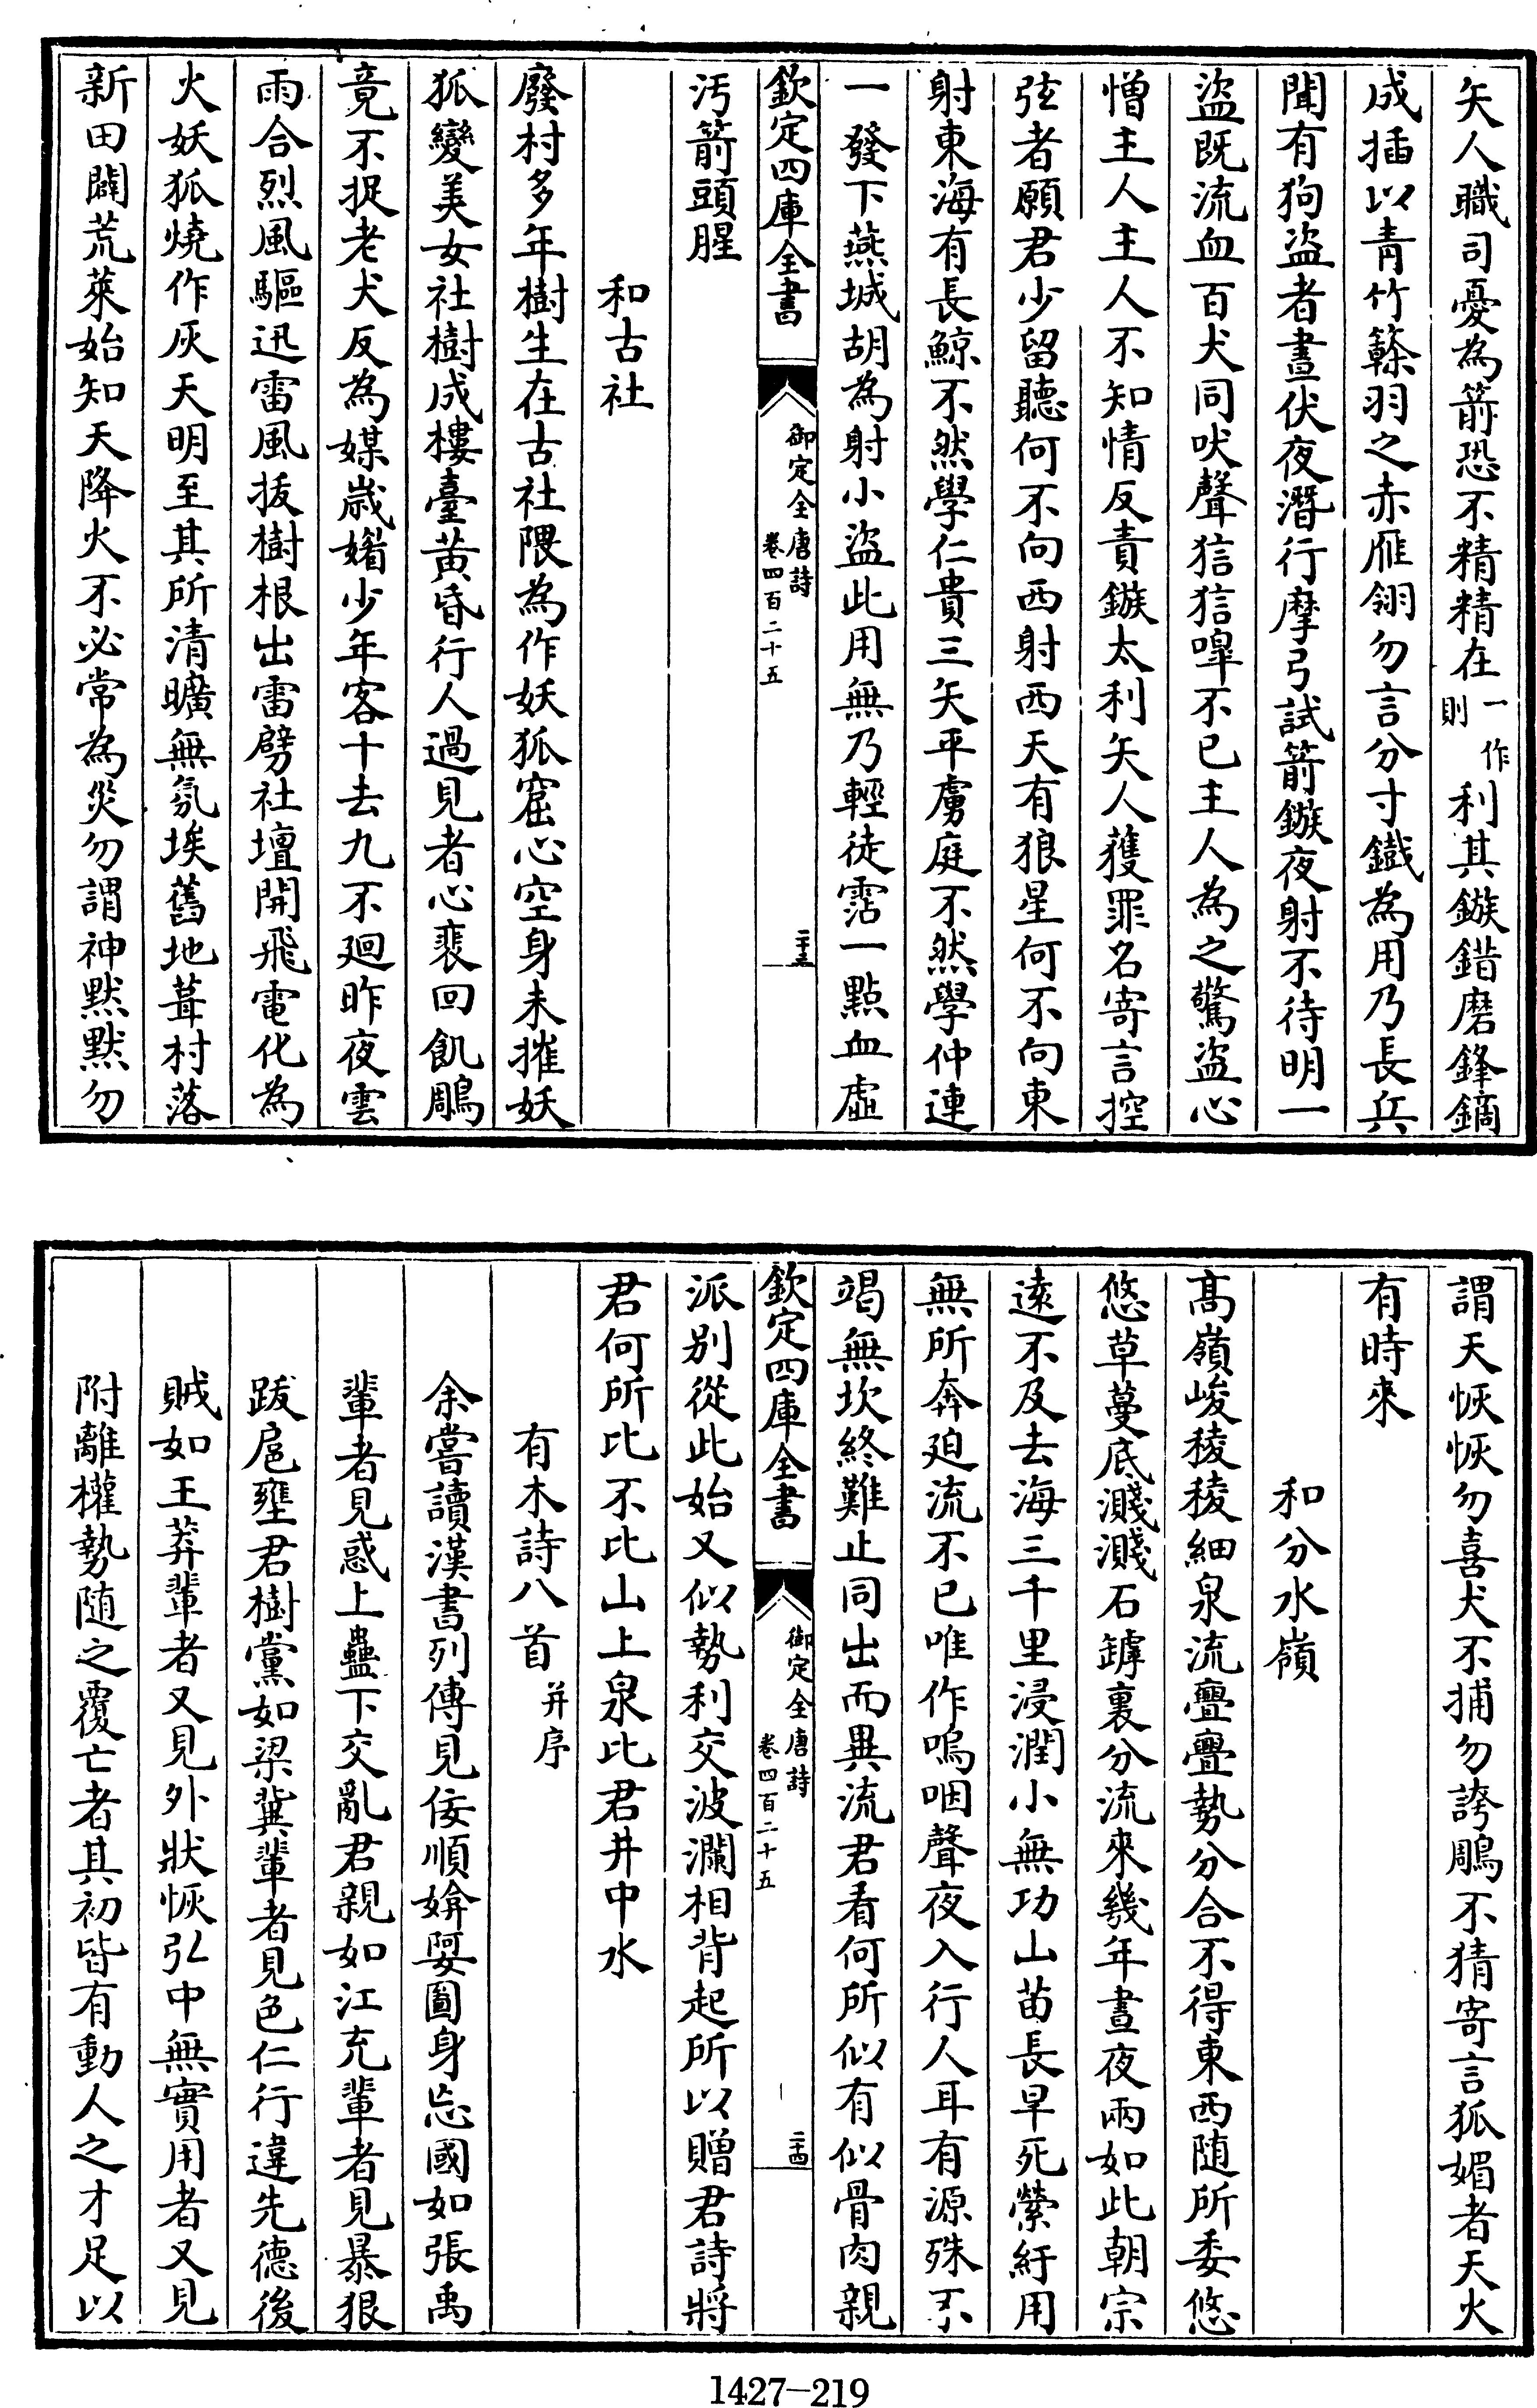 矢人職司憂為箭恐不精精在一作則利其鏃錯磨鋒鏑
成插以青竹簳羽之赤雁翎勿言分寸鐵為用乃長兵
聞有狗盗者晝伏夜潛行摩弓試箭鏃夜射不待明一
盜既流血百犬同吠聲狺狺嘷不已主人為之驚盜心
憎主人主人不知情反責鏃太利矢人獲罪名寄言控
弦者願君少留聽何不向西射西天有狼星何不向東
射東海有長鯨不然學仁貴三矢平虜庭不然學仲連
一發下燕城胡為射小盜此用無乃輕徒霑一點血虛
欽定四庫全書
御定全唐詩
卷四百二十五
二十三
汚箭頭腥
和古社
廢村多年樹生在古社隈為作妖狐窟心空身未摧妖
狐變美女社樹成樓臺黃昏行人過見者心裴回飢鵰
竟不捉老犬反為媒歲媚少年客十去九不廻昨夜雲
雨合烈風驅迅雷風拔樹根出雷劈社壇開飛電化為
火妖狐燒作灰天明至其所清曠無氛埃舊地葺村落
新田闢荒萊始知天降火不必常為災勿謂神默默勿
謂天恢恢勿喜犬不捕勿誇鵰不猜寄言狐媚者天火
有時來
和分水嶺
髙嶺峻稜稜細泉流亹亹勢分合不得東西隨所委悠
悠草蔓底濺濺石罅裏分流來幾年晝夜兩如此朝宗
遠不及去海三千里浸潤小無功山苗長旱死縈紆用
無所奔廹流不已唯作嗚咽聲夜入行人耳有源殊不
竭無坎終難止同出而異流君看何所似有似骨肉親
欽定四庫全書
御定全唐詩
卷四百二十五
二十四
派別從此始又似勢利交波瀾相背起所以贈君詩將
君何所比不比山上泉比君井中水
有木詩八首并序
余嘗讀漢書列傳見佞順媕婀圖身忘國如張禹
輩者見惑上蠱下交亂君親如江充輩者見暴狠
跋扈壅君樹黨如梁冀輩者見色仁行違先德後
賊如王莽輩者又見外狀恢弘中無實用者又見
附離權勢隨之覆亡者其初皆有動人之才足以
1427—219